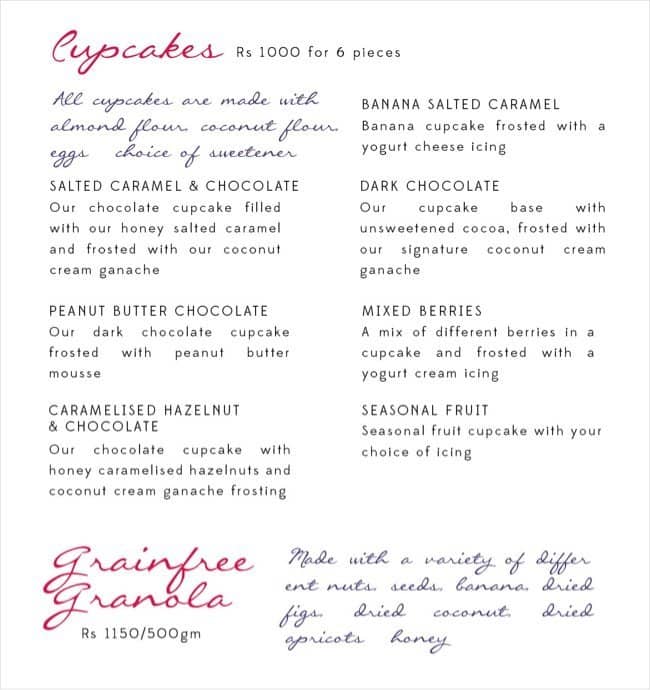 Cupcakes Rs 1000 for 6 pieces
All cupcakes are made with
almond flour, coconut flour,
eggs choice of sweetener
SALTED CARAMEL & CHOCOLATE
Our chocolate cupcake filled
with our honey salted caramel
and frosted with our coconut
cream ganache
PEANUT BUTTER CHOCOLATE
Our dark chocolate cupcake
frosted with peanut butter
mousse
CARAMELISED HAZELNUT
& CHOCOLATE
Our chocolate cupcake with
honey caramelised hazelnuts and
coconut cream ganache frosting
BANANA SALTED CARAMEL
Banana cupcake frosted with a
yogurt cheese icing
DARK CHOCOLATE
Our cupcake base with
unsweetened cocoa, frosted with
our signature coconut cream
ganache
MIXED BERRIES
A mix of different berries in a
cupcake and frosted with a
yogurt cream icing
SEASONAL FRUIT
Seasonal fruit cupcake with your
choice of icing
Grainfree
Granola
Rs 1150/500gm
Made with a variety of differ
ent nuts, seeds, banana, dried
figs, dried coconut, dried
apricots honey